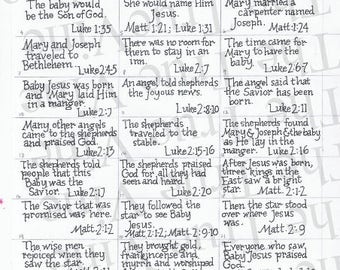 The baby would
be the Son of God.
Luke 1:35
She would name Him
Jesus.
Matt. 1:21; Luke 1:31
Mary married a
carpenter named
Joseph.
Matt. 1:24
Mary and Joseph
traveled to
Bethlehem.
Luke 2:4,5
There was no room for
them to stay in an
inn.
Luke 2:7
The time came for
Mary to have the
baby.
Luke 2:6,7
Baby Jesus was born
and Mary laid Him
in a manger.
Luke 2:7
An angel told shepherds
the joyous news.
Luke 2:8-10
The angel said that
the Savior has been
born.
Luke 2:11
Many other angels
came to the shepherds
and praised God.
Luke 2:13
The shepherds
traveled to the
stable.
Luke 2:15-16
The shepherds found
Mary & Joseph & the baby
as He lay in the
manger.
Luke 2:16
The shepherds told
people that this
Baby was the
Savior.
Luke 2:17
The shepherds praised
God for all they had
seen and heard.
Luke 2:20
After Jesus was born,
three kings in the
East saw a bright
star.
Matt. 2:1,2
The Savior that was
promised was here.
Matt. 2:2
They followed the
star to see Baby
Jesus.
Matt. 2:2; Matt. 2:9-10
Then the star
stood over where
Jesus was.
Matt. 2:9
The wise men
rejoiced when they
saw the star.
They brought gold,
frankincense and
myrrh and worshiped
Everyone who saw
Baby Jesus praised
God.